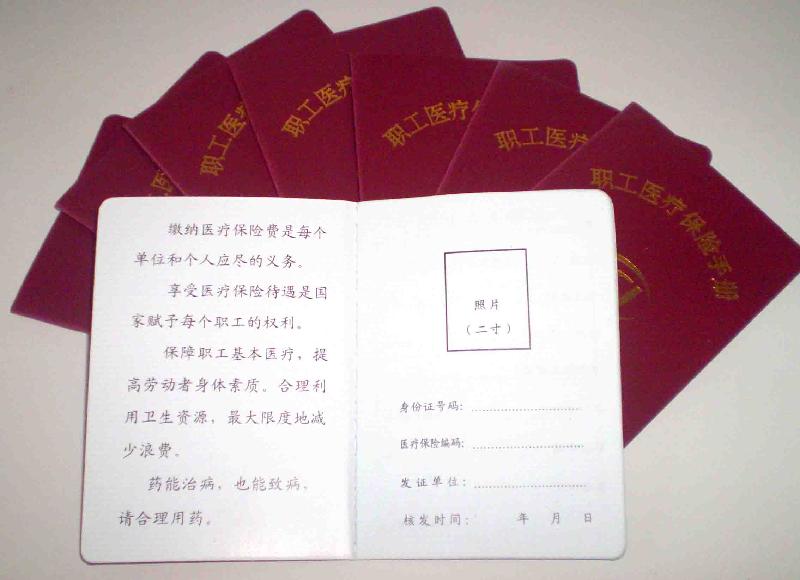 职工医疗
职工医
职工医疗
职工医疗
职工医疗保险手册
缴纳医疗保险费是每个
单位和个人应尽的义务。
享受医疗保险待遇是国
家赋予每个职工的权利。
保障职工基本医疗，提
高劳动者身体素质。合理利
用卫生资源，最大限度地减
少浪费。
药能治病，也能致病，
请合理用药。
照片
（二寸）
身份证号码：
医疗保险编码：
发证单位：
核发时间： 年 月 日